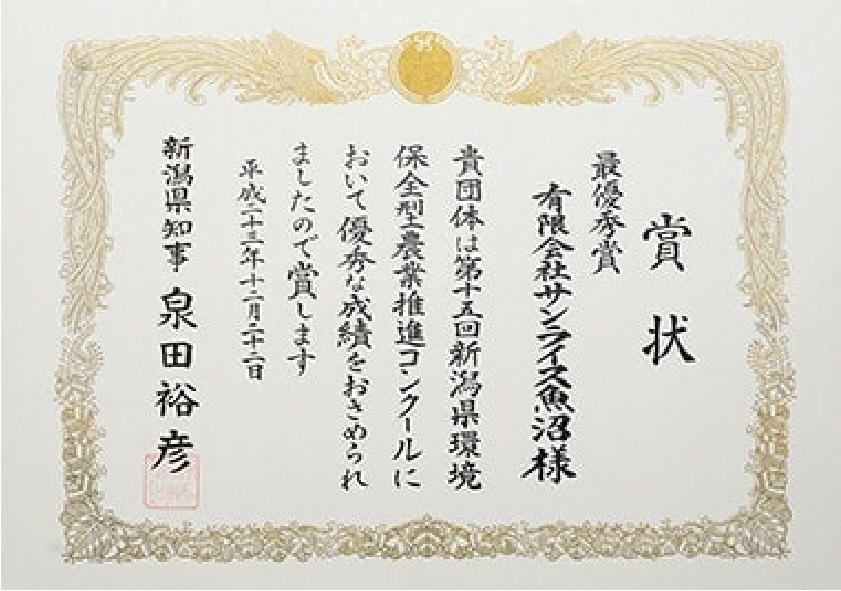 賞状
最優秀賞
有限会社サンライズ魚沼様
貴団体は第十五回新潟県環境
保全型農業推進コンクールに
おいて優秀な成績をおさめられ
ましたので賞します
平成二十三年十二月二十二日
新潟県知事 泉田裕彦